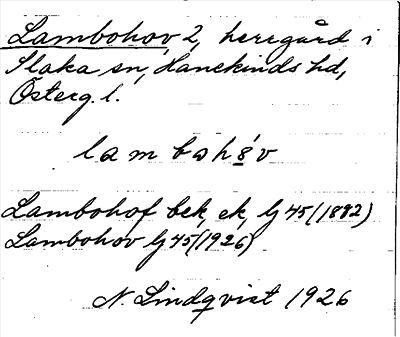 Lambohov, 2, herregård i
Slaka sn, Hanekinds hd,
Österg. l.
lambohóv
Lambohof bek, ek, lj 45 (1892)
Lambohov lj 45 (1926)
N. Lindqvist 1926